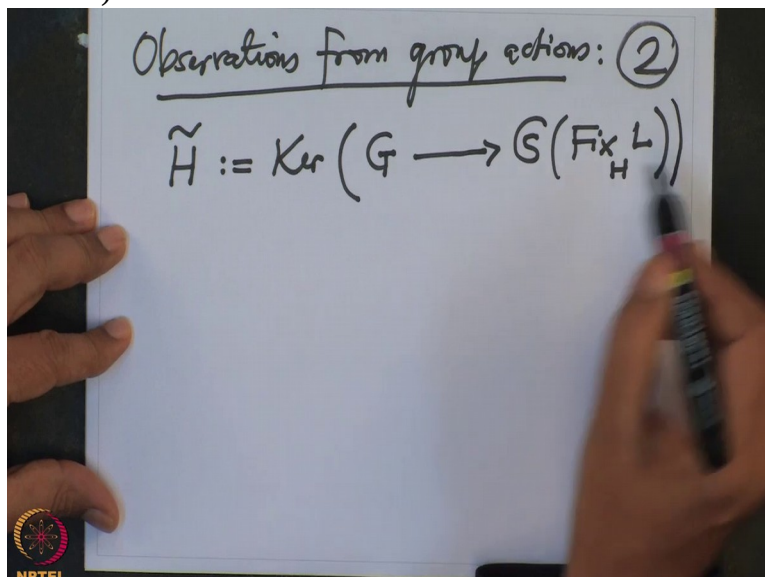 Observations from group actions: ②
H̃ := Ker ( G ⟶ 𝔖 ( Fix_H L ) )
NPTEL